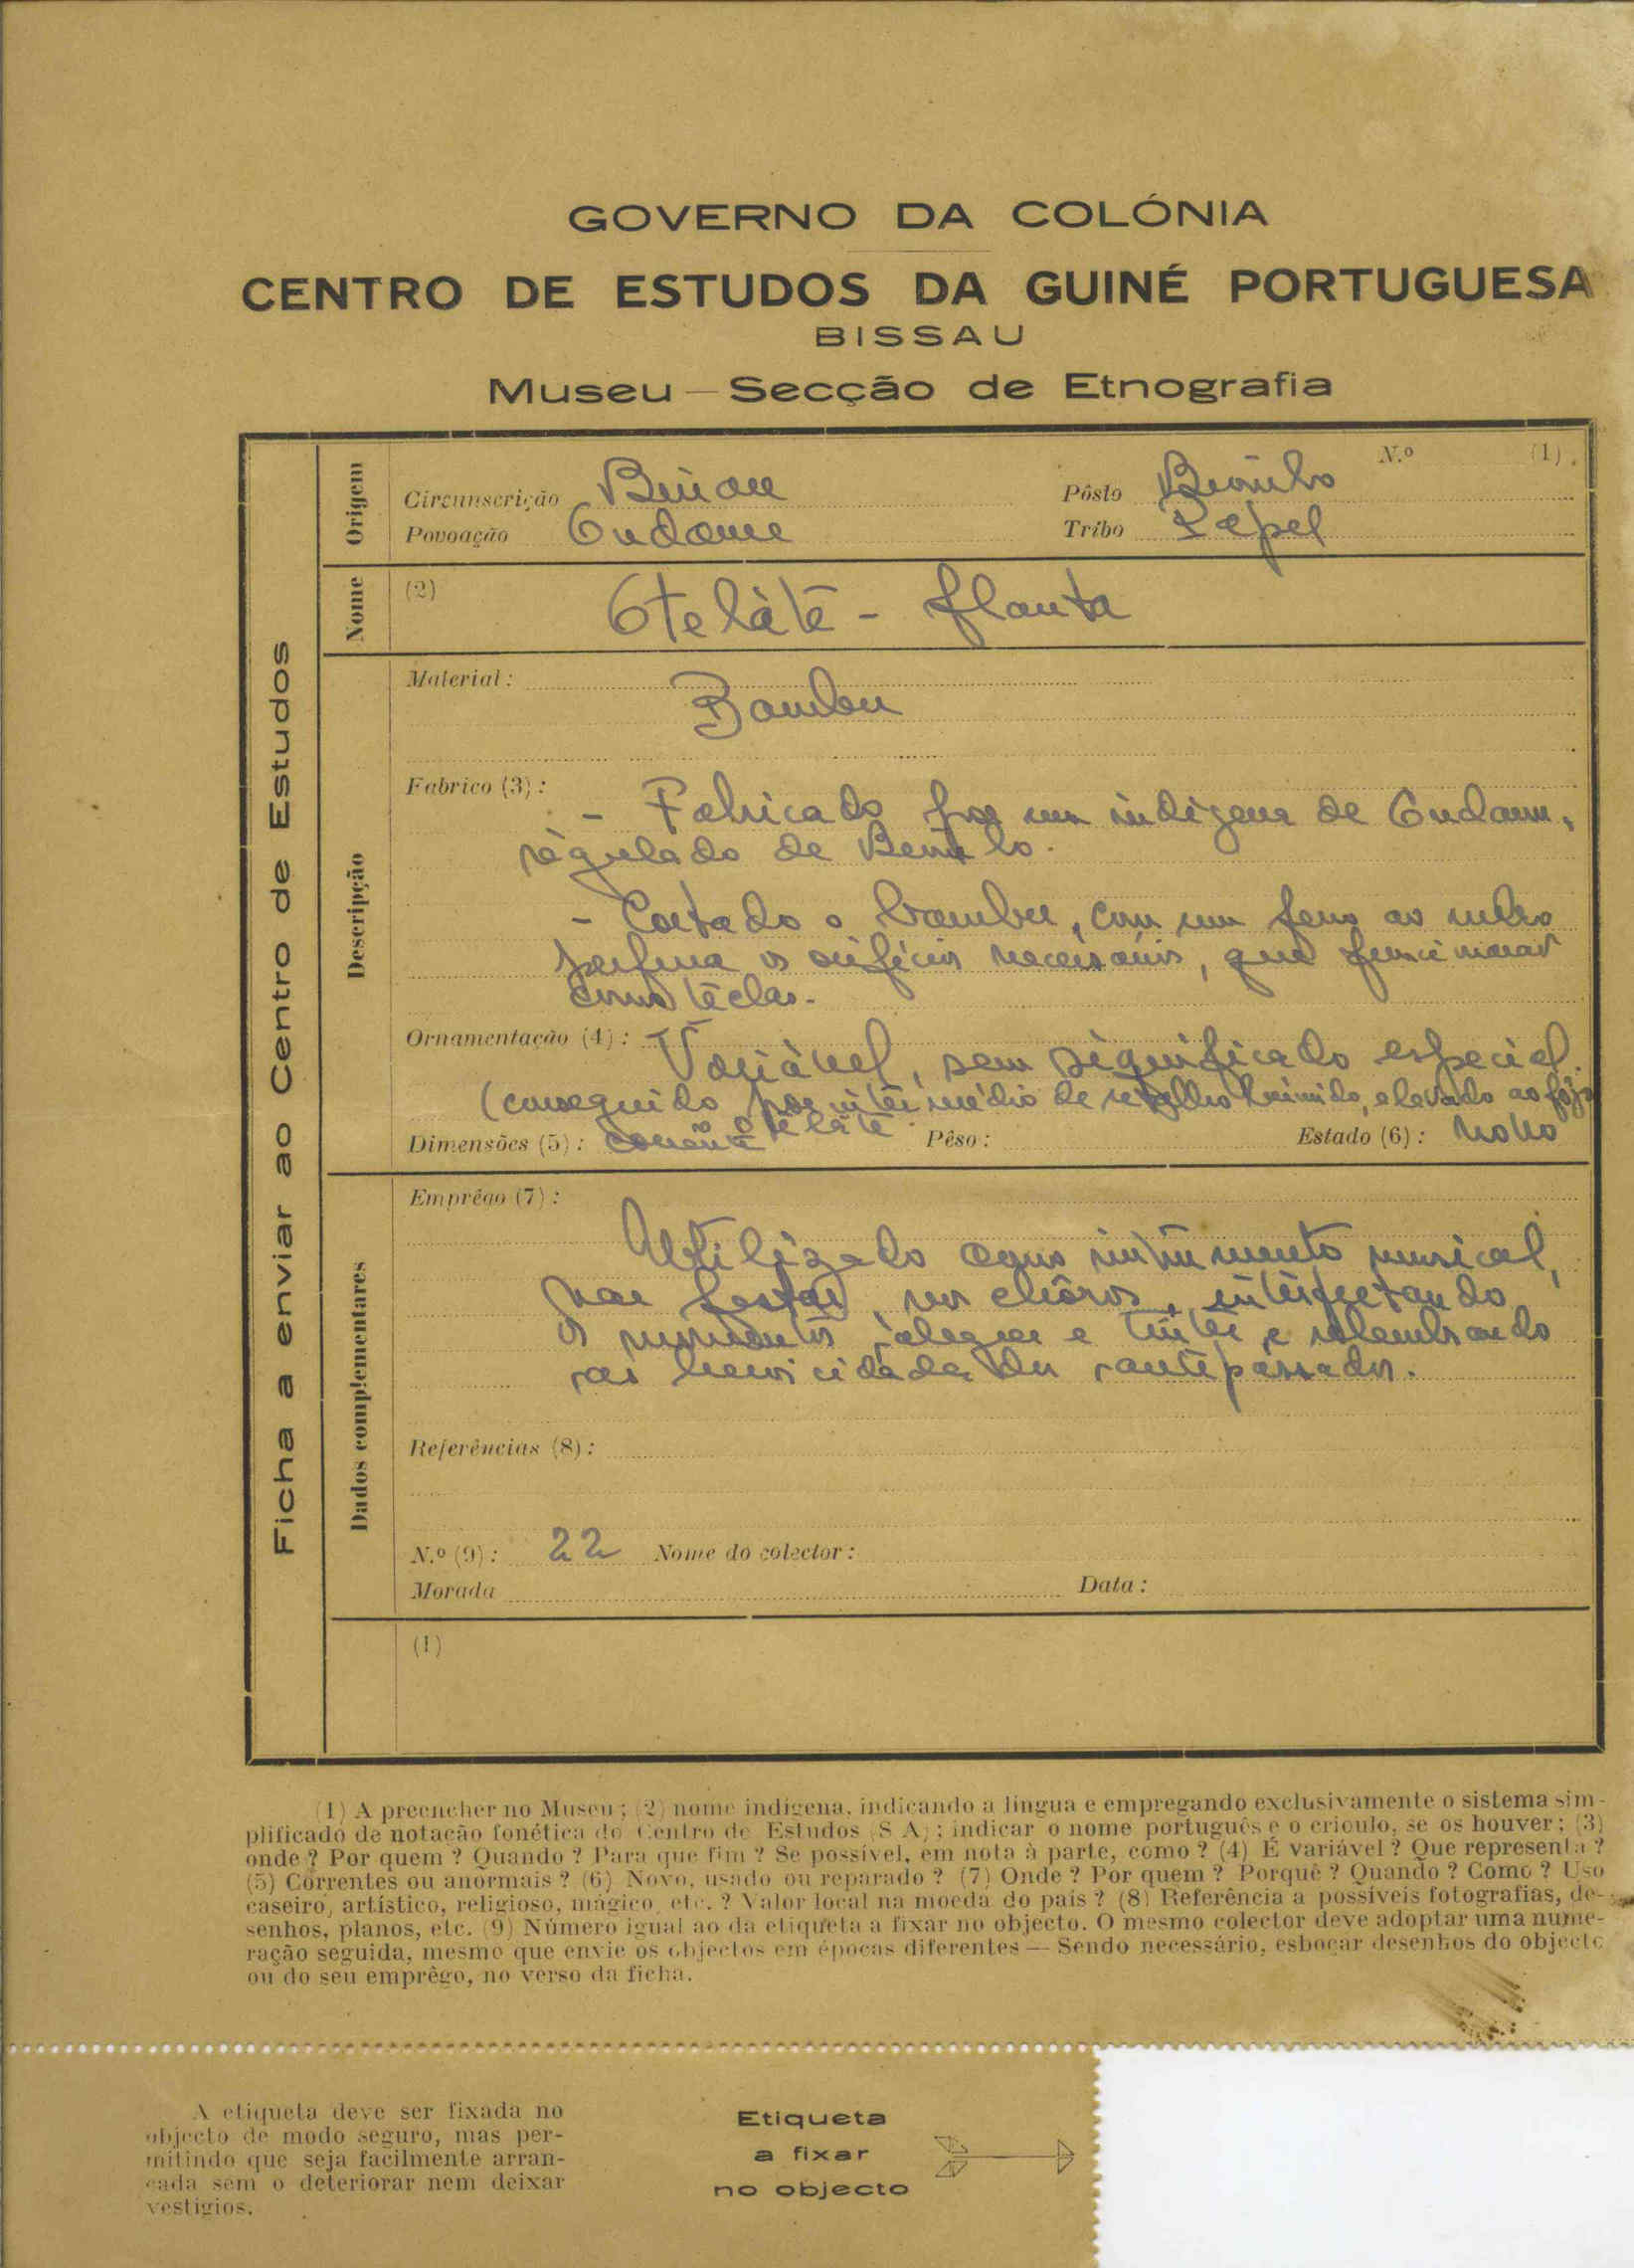 GOVERNO DA COLÓNIA
CENTRO DE ESTUDOS DA GUINÉ PORTUGUESA
BISSAU
Museu — Secção de Etnografia
Ficha a enviar ao Centro de Estudos
Origem
N.º (1)
Circunscrição Bissau Pôsto
Povoação Ondame Tribo Papel
Nome
(2) Otelàtê - flauta
Descripção
Material:
Bambu
Fabrico (3):
- Fabricado por um indígena de Ondame,
régulado de
- Cortado o bambu, com um ferro ao rubro
perfura os orifícios necessários, que funcionarão
como téclas.
Ornamentação (4): Variável, sem significado especial.
(conseguido por intermédio de ao fôgo
Dimensões (5): Pêso: Estado (6): novo
Dados complementares
Emprêgo (7):
Utilizado como instrumento musical,
nas festas, nos chôros, interpretando
os momentos alegres e tristes e relembrando
as heroicidades dos antepassados.
Referências (8):
N.º (9): 22 Nome do colector:
Morada Data:
(1)
(1) A preencher no Museu; (2) nome indígena, indicando a língua e empregando exclusivamente o sistema sim-
plificado de notação fonética do Centro de Estudos (S A); indicar o nome português e o crioulo, se os houver; (3)
onde? Por quem? Quando? Para que fim? Se possível, em nota à parte, como? (4) É variável? Que representa?
(5) Correntes ou anormais? (6) Novo, usado ou reparado? (7) Onde? Por quem? Porquê? Quando? Como? Uso
caseiro, artístico, religioso, mágico, etc.? Valor local na moeda do país? (8) Referência a possíveis fotografias, de-
senhos, planos, etc. (9) Número igual ao da etiqueta a fixar no objecto. O mesmo colector deve adoptar uma nume-
ração seguida, mesmo que envie os objectos em épocas diferentes — Sendo necessário, esboçar desenhos do objecto
ou do seu emprêgo, no verso da ficha.
A etiqueta deve ser fixada no
objecto de modo seguro, mas per-
mitindo que seja facilmente arran-
cada sem o deteriorar nem deixar
vestígios.
Etiqueta
a fixar
no objecto